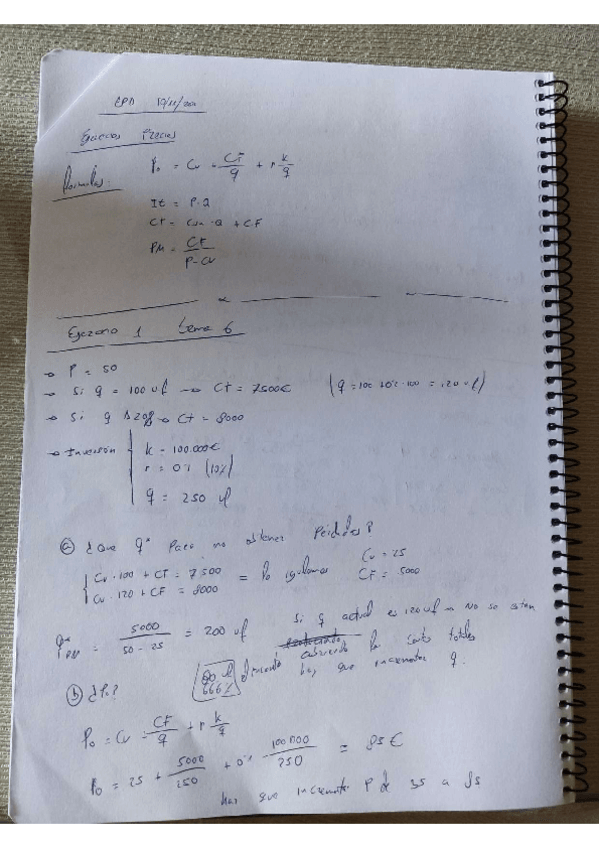 EPD
Ejercicios Precios
Formulas:
P₀ = Cv + CF/q + r k/q
It = P·Q
Ct = Cvu·Q + CF
PM = CF/P-Cv
Ejercicio 1 Tema 6
→ P = 50
→ Si q = 100 uf → Ct = 7500€ (q = 100 + 0'2·100 = 120 uf)
→ Si q Δ20% → Ct = 8000
→ Inversión
k = 100.000€
r = 0'1 (10%)
q = 250 uf
a) ¿Que q* para no obtener Perdidas?
Cv·100 + CF = 7500
Cv·120 + CF = 8000
= lo igualamos
Cv = 25
CF = 5000
qPM = 5000/50-25 = 200 uf
Si q actual es 120 uf → No se estan
cubriendo los costes totales
hay que incrementar q.
66'6%
b) ¿P₀?
P₀ = Cv + CF/q + r k/q
P₀ = 25 + 5000/250 + 0'1 · 100000/250 = 85 €
hay que incrementar P de 35 a 85